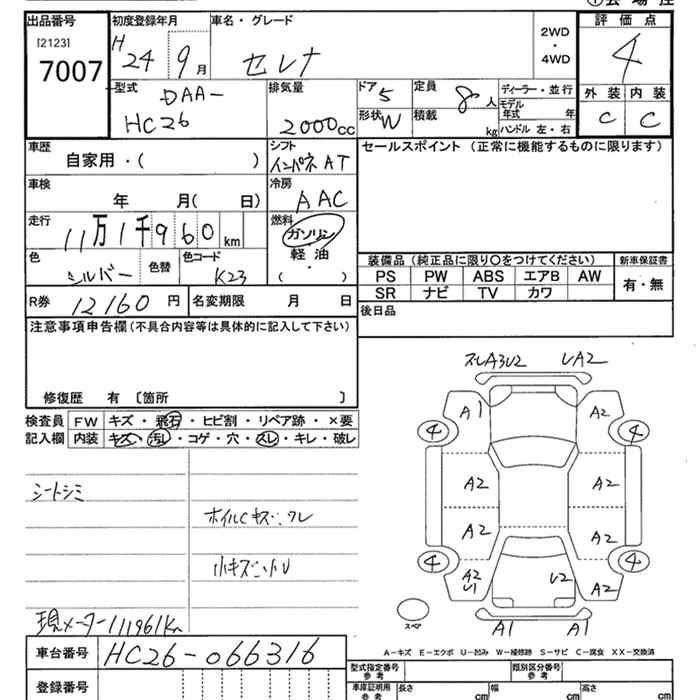 出品番号 初度登録年月 車名・グレード 評価点
[2123] 7007 H 24 9月 セレナ 2WD・4WD 4
外装 内装
C C
型式 DAA-HC26 排気量 2000cc ドア 5 形状 W 定員 8人 積載 kg ディーラー・並行 モデル年式 年 ハンドル 左・右
車歴 自家用・( ) シフト インパネAT セールスポイント (正常に機能するものに限ります)
車検 年 月( 日) 冷房 AAC
走行 11万1千960km 燃料 ガソリン 軽油 ・ ( )
色 シルバー 色替 色コード K23
装備品(純正品に限り〇をつけてください) 新車保証書
PS PW ABS エアB AW 有・無
SR ナビ TV カワ
R券 12160円 名変期限 月 日 後日品
注意事項申告欄(不具合内容等は具体的に記入して下さい)
修復歴 有 〔箇所 〕
検査員 FW キズ・飛石・ヒビ割・リペア跡・×要
記入欄 内装 キズ・汚レ・コゲ・穴・スレ・キレ・破レ
シートシミ
ホイルCキズ、クレ
小キズ、小U
現メーター111961Km
車台番号 HC26-066316
登録番号
スレA3U2 UA2
A1 A2
4 4
A2 A2
A2 A2
4 4
A2 U1 U2 A2
スペア A1 A1
A-キズ E-エクボ U-凹み W-補修跡 S-サビ C-腐食 XX-交換済
型式指定番号 参考 類別区分番号 参考
車庫証明用 参考 長さ cm 幅 cm 高さ cm